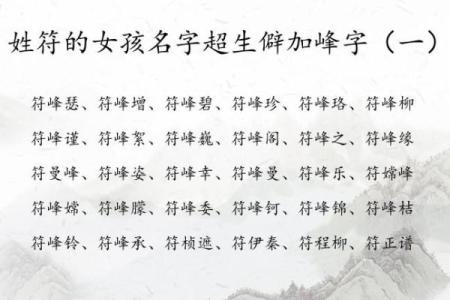 姓符的女孩名字超生僻加峰字（一）
符峰瑟、符峰增、符峰碧、符峰珍、符峰珞、符峰柳
符峰谨、符峰絮、符峰巍、符峰阁、符峰之、符峰缘
符曼峰、符峰姿、符峰幸、符峰曼、符峰乐、符嫦峰
符峰嫦、符峰朦、符峰委、符峰钶、符峰锦、符峰桔
符峰铃、符峰承、符桢遮、符伊秦、符程柳、符正谱